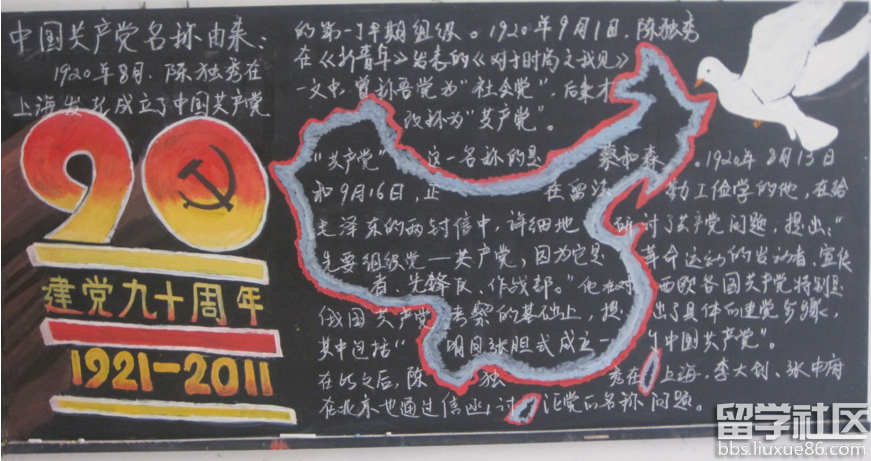 中国共产党名称由来：
1920年8月.陈独秀在
上海发起成立了中国共产党
的第一个早期组织。1920年9月1日.陈独秀
在《新青年》发表的《对于时局之我见》
一文中,曾称吾党为"社会党",后来才
改称为"共产党"。
"共产党"这一名称的是蔡和森。1920年8月13日
和9月16日,正在留法勤工俭学的他,在给
毛泽东的两封信中,详细地研讨了共产党问题,提出:"
先要组织党一共产党,因为它是革命运动的发动者、宣传
者、先锋队、作战部。"他在对西欧各国共产党特别是
俄国共产党考察的基础上,提出了具体的建党步骤,
其中包括"明目张胆式成立一个中国共产党"。
在此之后,陈独秀在上海.李大钊、张申府
在北京也通过信函讨论党的名称问题。
90
建党九十周年
1921-2011
留学社区
bbs.liuxue86.com